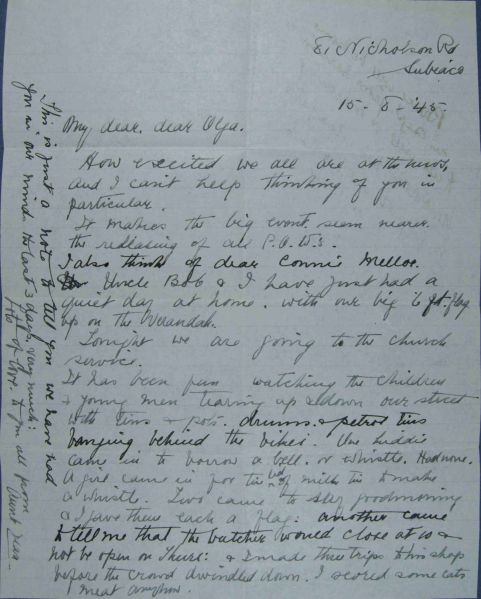 8. Nicholson Rd
Subiaco
15-8-45.
My dear, dear Olga.
How excited we all are at the news,
and I can't help thinking of you in
particular.
It makes the big event seem nearer.
the releasing of all P.O.W.S.
I also think of dear Connie Mellor.
Uncle Bob & I have just had a
quiet day at home. with our big 6 ft. flag
up on the Verandah.
Tonight we are going to the church
service.
It has been fun watching the children
& young men tearing up & down our street
with tins & pots. drums. & petrol tins
banging behind the bikes. One kiddie
came in to borrow a bell. or whistle. Had none.
A girl came in for the of milk tin to make
a whistle. Two came to say goodmorning
& I gave them each a flag: another came
to tell me that the butcher would close at 10 &
not be open on Thurs: & I made three trips to his shop
before the crowd dwindled down. I scored some cats
meat anyhow.
This is just a note to tell you we have had
you in our minds the last 3 days, very much:
of love to you all from
Aunt